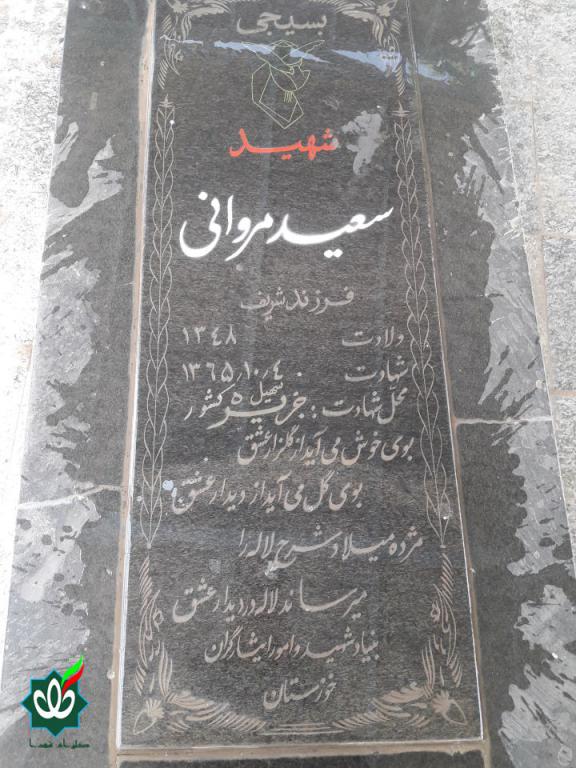 بسیجی
شهید
سعید مروانی
فرزند شریف
ولادت ۱۳۴۸
شهادت ۱۳۶۵/۱۰/۴
محل شهادت: جزیره سهیل کشور
بوی خوش می آید از گلزار عشق
بوی گل می آید از دیدار عشق
مژده میلاد شرح لاله را
میرساند لاله در دیدار عشق
بنیاد شهید و امور ایثارگران
خوزستان